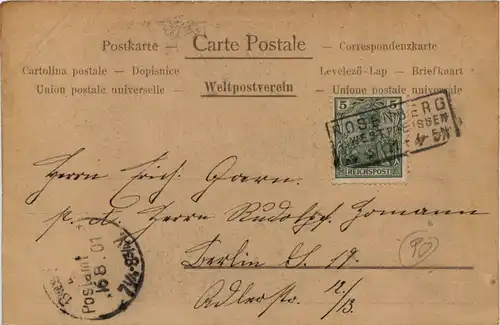 Postkarte — Carte Postale — Correspondenzkarte
Cartolina postale — Dopisnice
Levelező-Lap — Briefkaart
Union postale universelle — Weltpostverein — Unione postale universale
5 5
REICHSPOST
ROSENBERG
Herrn Erich Garn.
p. ad. Herrn Rudolf Homann
Berlin
Adlerstr. 12/13.
Postamt
16 8. 01
7¼-8